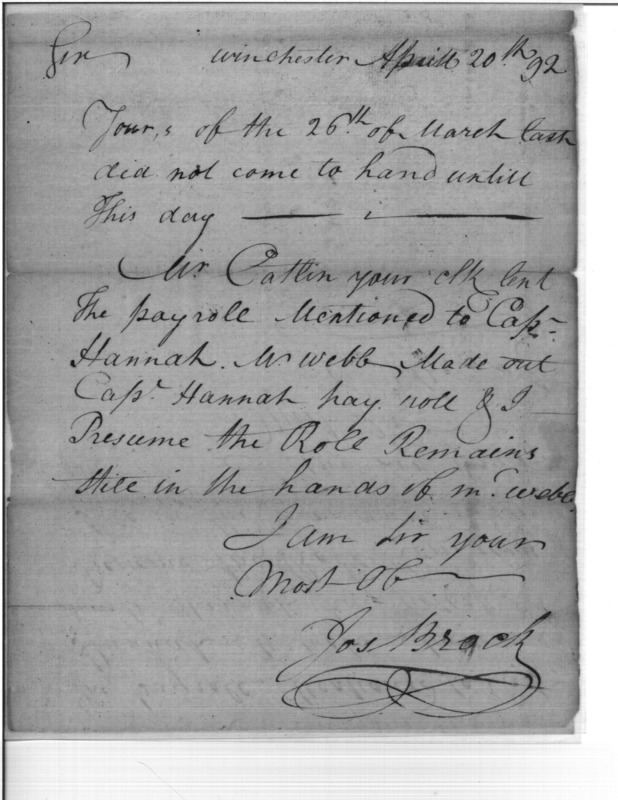 Sir winchester Aprill 20th 92
Your,s of the 26th of March last
did not come to hand untill
This day
Mr Catlin your clk sent
The payroll Mentioned to Capr
Hannah. Mr webb Made out
Capr Hannah pay roll & I
Presume the Roll Remains
still in the hands of mr webb.
I am Sir your
Most Ob
Jos Brock